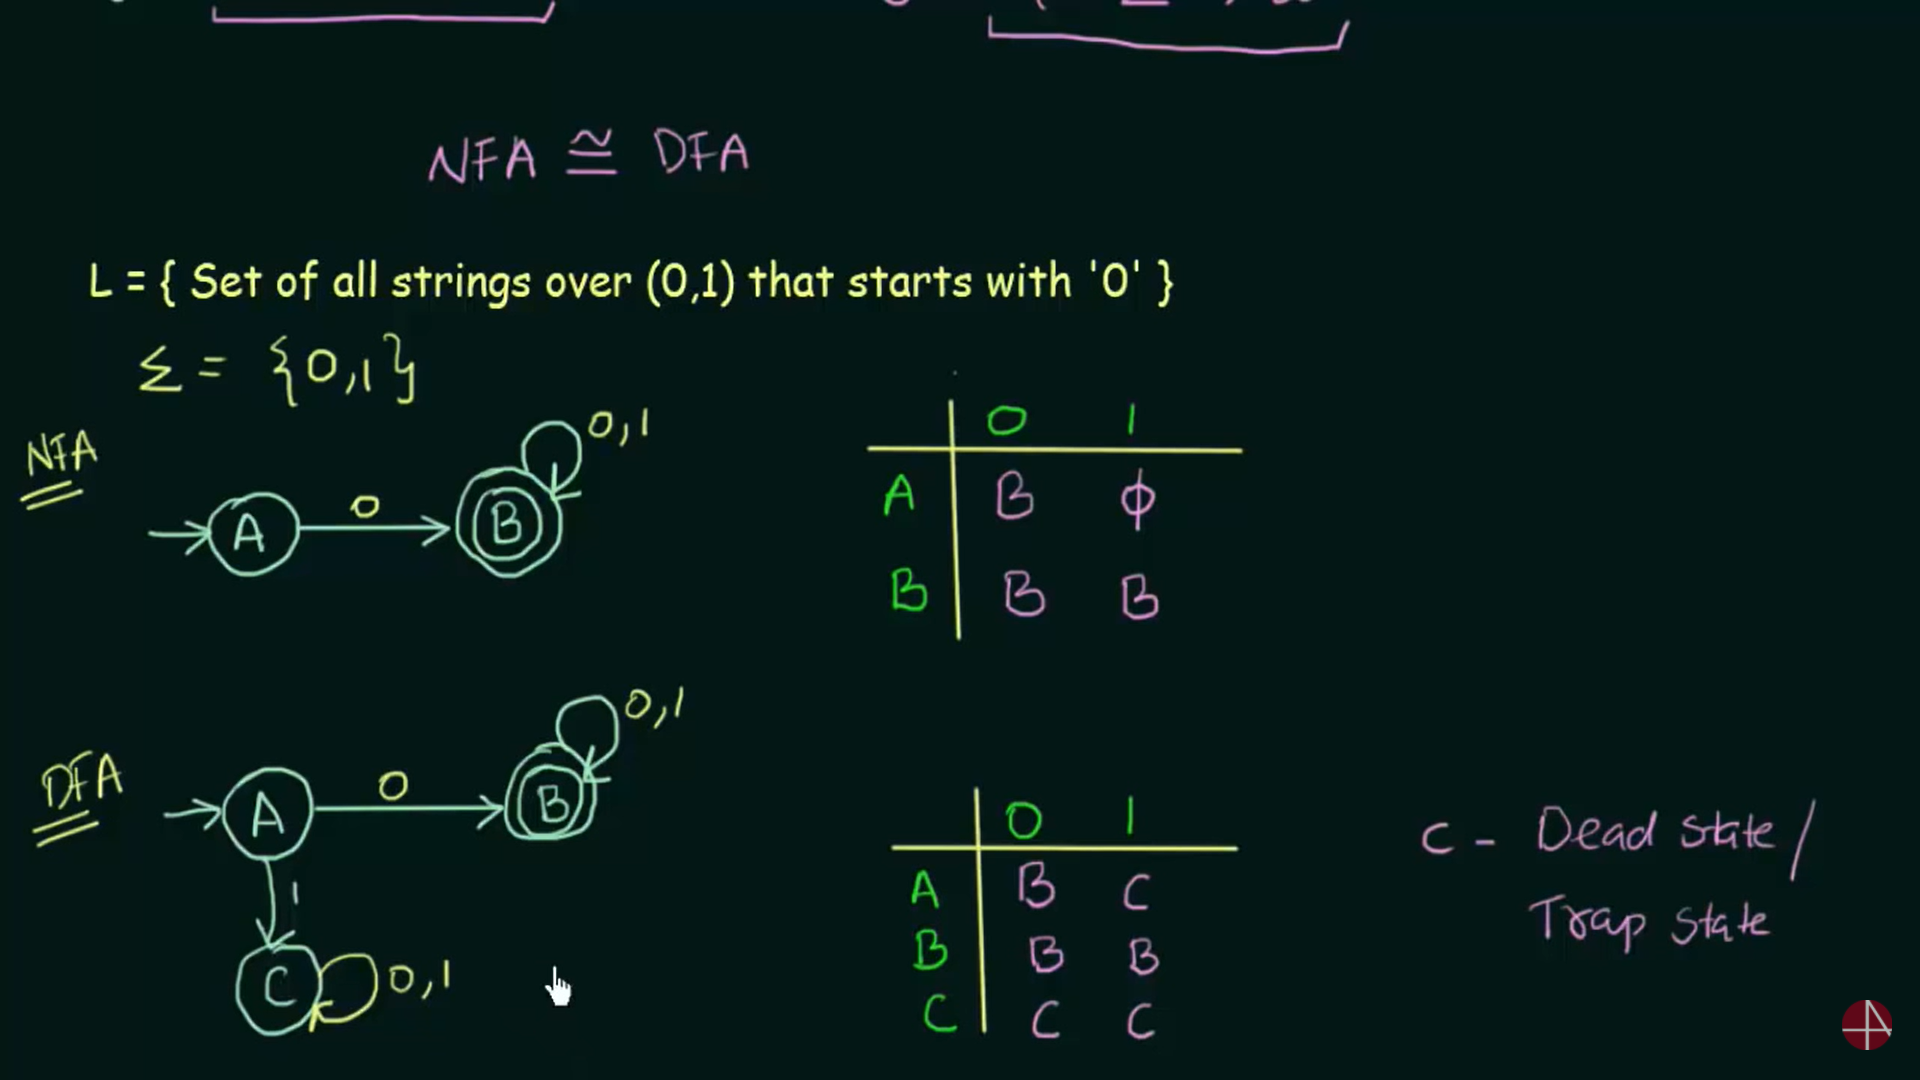 NFA ≅ DFA
L = { Set of all strings over (0,1) that starts with '0' }
Σ = {0,1}
NFA
0,1
0
A B
0 1
A B ϕ
B B B
DFA
0,1
0
A B
1
C 0,1
0 1
A B C
B B B
C C C
C - Dead State/
Trap State